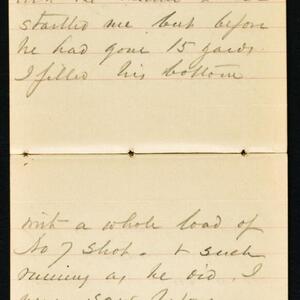 startled me but before
he had gone 15 yards
I filled his bottom
with a whole load of
No 7 shot. & such
running as he did. I
never saw